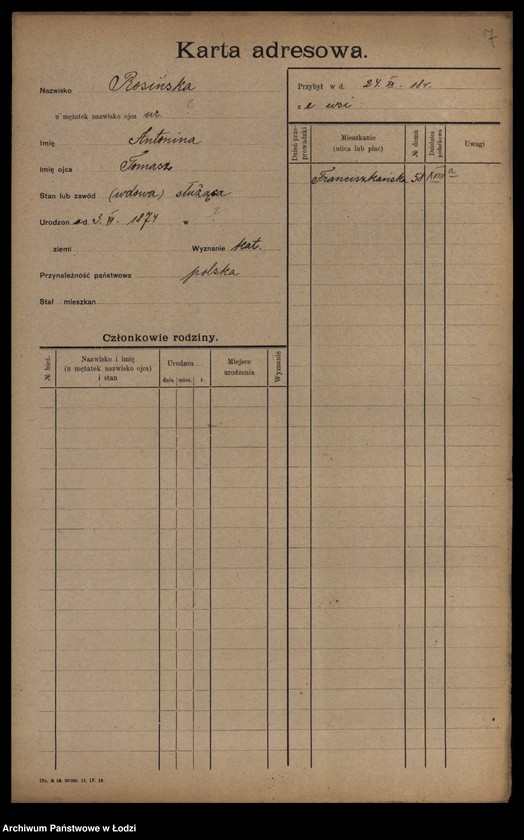 7
Karta adresowa.
Nazwisko Rosińska
u mężatek nazwisko ojca ur ?
Imię Antonina
Imię ojca Tomasz
Stan lub zawód (wdowa) służąca
Urodzon d. 3. VI. 1874 w ?
ziemi Wyznanie kat.
Przynależność państwowa polska
Stał mieszkan
Przybył w d. 24. 18 r.
z ze wsi
Dzień przeprowadzki
Mieszkanie (ulica lub plac)
№ domu
Dzielnica podatkowa
Uwagi
Franciszkańska 58 XVIII a
Członkowie rodziny.
№ bież.
Nazwisko i imię (u mężatek nazwisko ojca) i stan
Urodzon
dnia mies. r.
Miejsce urodzenia
Wyznanie
Archiwum Państwowe w Łodzi